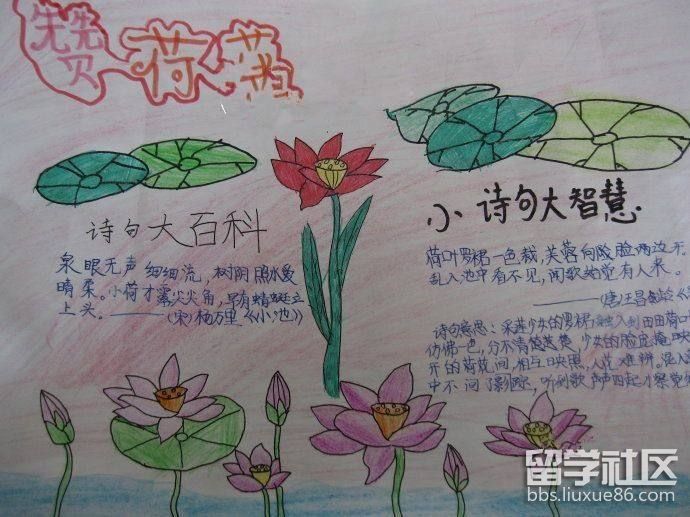 赞荷花
诗句大百科
泉眼无声细细流，树阴照水爱
晴柔。小荷才露尖尖角，早有蜻蜓立
上头。——(宋)杨万里《小池》
小诗句大智慧
荷叶罗裙一色裁，芙蓉向脸两边开
乱入池中看不见，闻歌始觉有人来。
——(唐)王昌龄
诗句意思：采莲少女的罗裙融入到田田荷叶
仿佛一色，分不清楚 少女的脸庞掩映
开的荷花间，相互映照，人花难辨。混入
中不间了影踪，听到歌声四起才察觉
留学社区
bbs.liuxue86.com